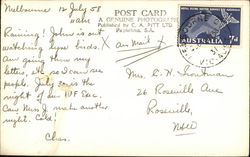 Melbourne 12 July 58
POST CARD
A GENUINE PHOTOGRAPH
Published by C. A. PITT LTD.
Raining! John is out
watching lyre birds. X
Am going thru my
letters, etc. so I can see
people. July 30 is the
night of
Can Miss J. make another
night. Cold!
Chas.
air mail
Mrs. R. H.
26 Roseville Ave
Roseville,
NSW
AUSTRALIA
7d